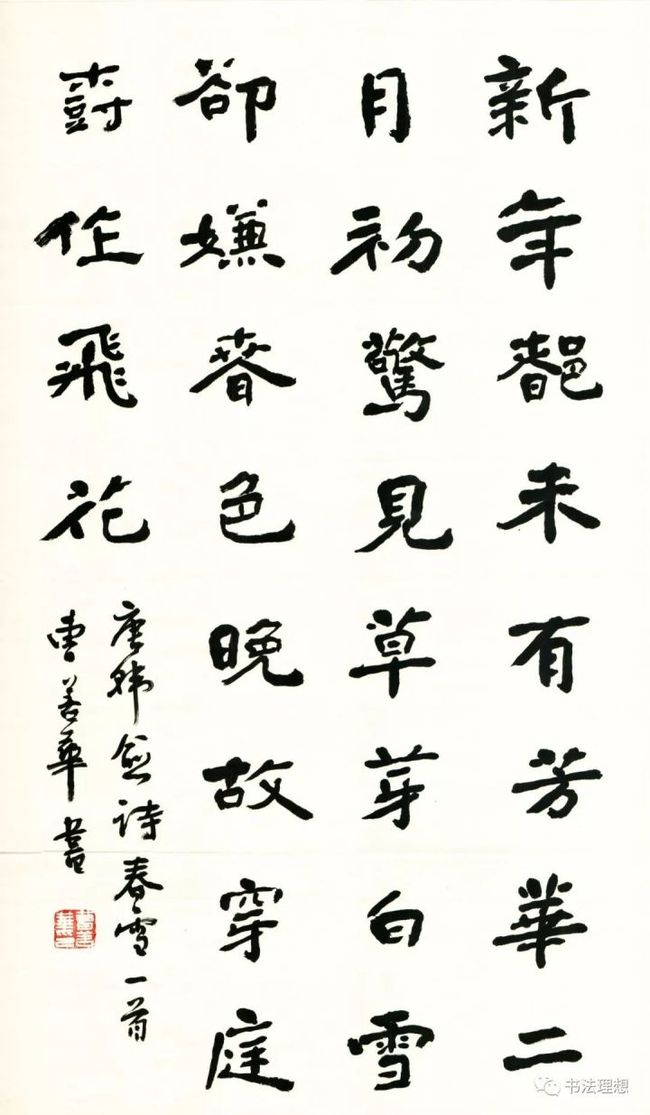 新年都未有芳華二
月初驚見草芽白雪
卻嫌春色晚故穿庭
樹作飛花
唐韓愈詩春雪一首
曹善華書
书法理想